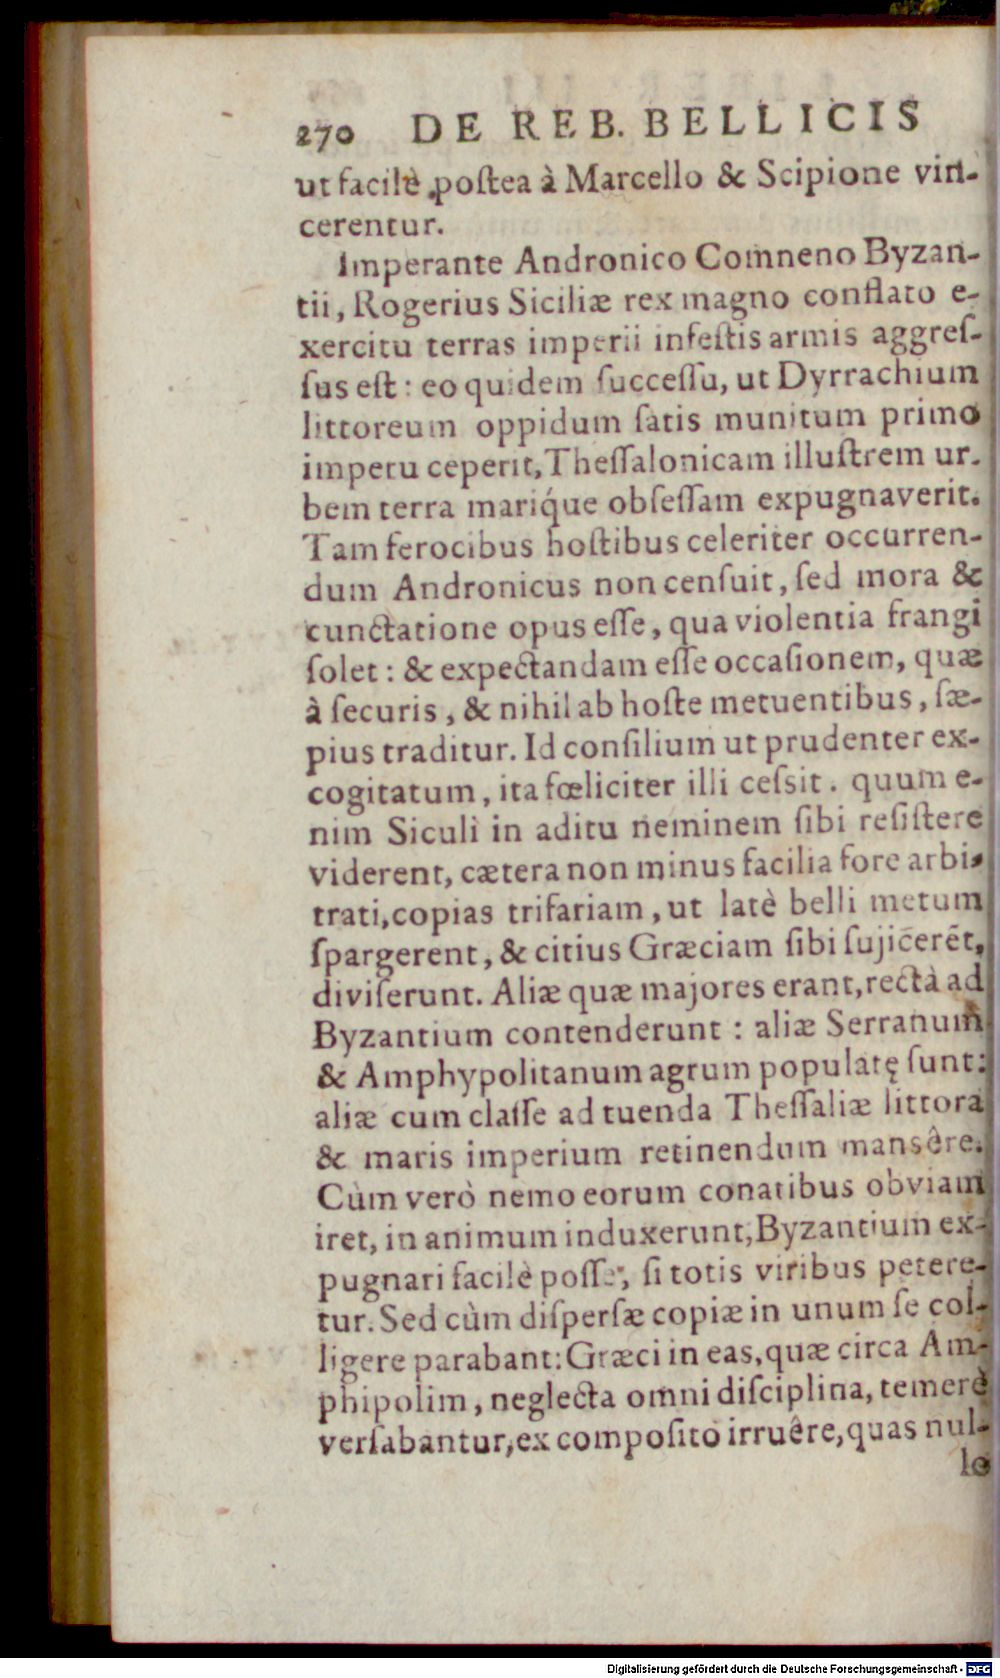 270 DE REB. BELLICIS
ut facilè poſtea à Marcello & Scipione vin-
cerentur.
Imperante Andronico Comneno Byzan-
tii, Rogerius Siciliæ rex magno conflato e-
xercitu terras imperii infeſtis armis aggreſ-
ſus eſt: eo quidem ſucceſſu, ut Dyrrachium
littoreum oppidum ſatis munitum primo
impetu ceperit, Theſſalonicam illuſtrem ur-
bem terra mariq́ue obſeſſam expugnaverit.
Tam ferocibus hoſtibus celeriter occurren-
dum Andronicus non cenſuit, ſed mora &
cunctatione opus eſſe, qua violentia frangi
ſolet: & expectandam eſſe occaſionem, quæ
à ſecuris, & nihil ab hoſte metuentibus, ſæ-
pius traditur. Id conſilium ut prudenter ex-
cogitatum, ita fœliciter illi ceſsit. quum e-
nim Siculi in aditu neminem ſibi reſiſtere
viderent, cætera non minus facilia fore arbi-
trati, copias trifariam, ut latè belli metum
ſpargerent, & citius Græciam ſibi ſujicerēt,
diviſerunt. Aliæ quæ majores erant, rectà ad
Byzantium contenderunt: aliæ Serranum
& Amphypolitanum agrum populatę ſunt:
aliæ cum claſſe ad tuenda Theſſaliæ littora
& maris imperium retinendum mansêre.
Cùm verò nemo eorum conatibus obviam
iret, in animum induxerunt, Byzantium ex-
pugnari facilè poſſe, ſi totis viribus petere-
tur. Sed cùm diſperſæ copiæ in unum ſe col-
ligere parabant: Græci in eas, quæ circa Am-
phipolim, neglecta omni diſciplina, temerè
verſabantur, ex compoſito irruêre, quas nul-
lo
Digitalisierung gefördert durch die Deutsche Forschungsgemeinschaft - DFG